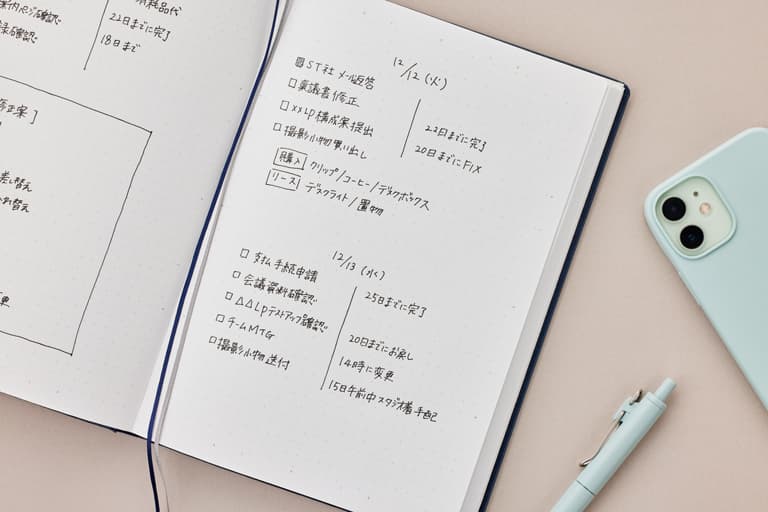 消耗品代
22日までに完了
18日まで
修正案]
差し替え
12/12 (火)
ST社 メール返答
□ 稟議書修正
□ ××LP構成案提出
22日までに完了
□ 撮影小物買い出し
20日までにFIX
購入 クリップ/コーヒー/デスクボックス
リース デスクライト/置物
12/13 (水)
□ 支払手続申請
25日までに完了
□ 会議資料確認
□ △△LPテストアップ確認
20日までにお戻し
□ チームMTG
14時に変更
□ 撮影小物送付
15日午前中スタジオ着手配